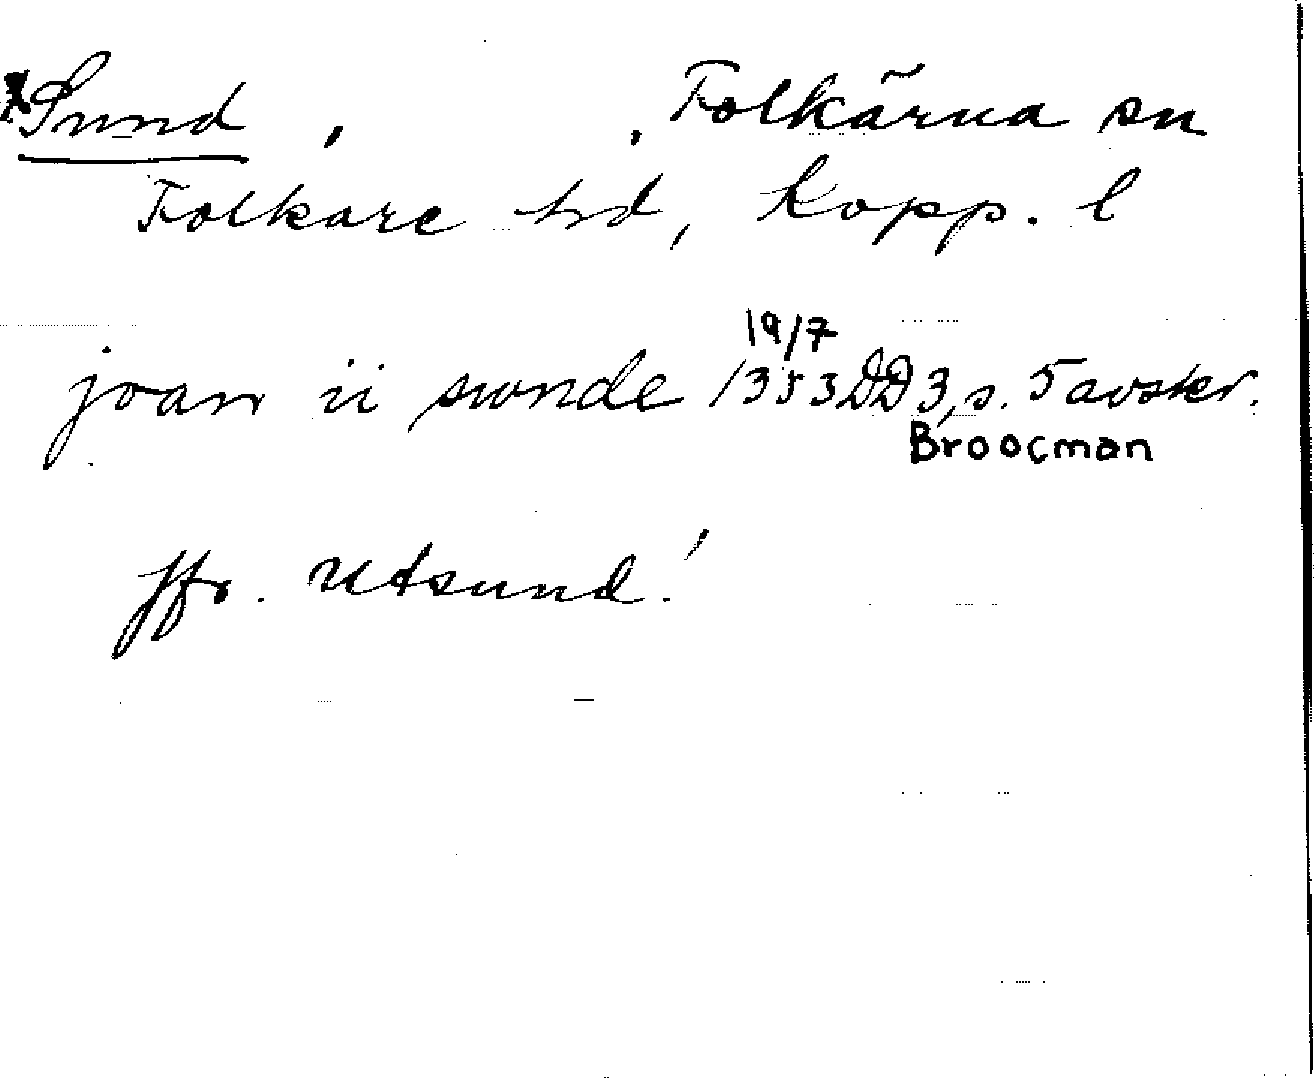 xSund , , Folkärna sn
Folkare hd, Kopp. l
19/7
joan ii swnde 1353 DD 3, s. 5 avskr.
Broocman
Jfr. Utsund!